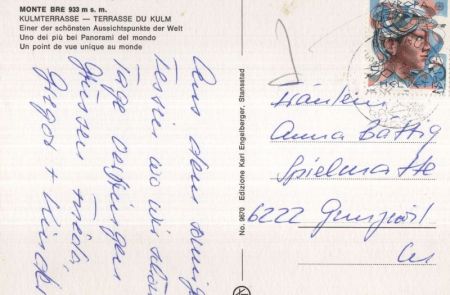 MONTE BRE 933 m s. m.
KULMTERRASSE — TERRASSE DU KULM
Einer der schönsten Aussichtspunkte der Welt
Uno dei più bei Panorami del mondo
Un point de vue unique au monde
Aus dem
Tessin wo wir
Tage verbringen
grüssen Friedi,
Gregor + Kinder
No. 9670 Edizione Karl Engelberger, Stansstad
HELVETIA
Fräulein
Anna Bättig
Spielmatte
6222 Gunzwil